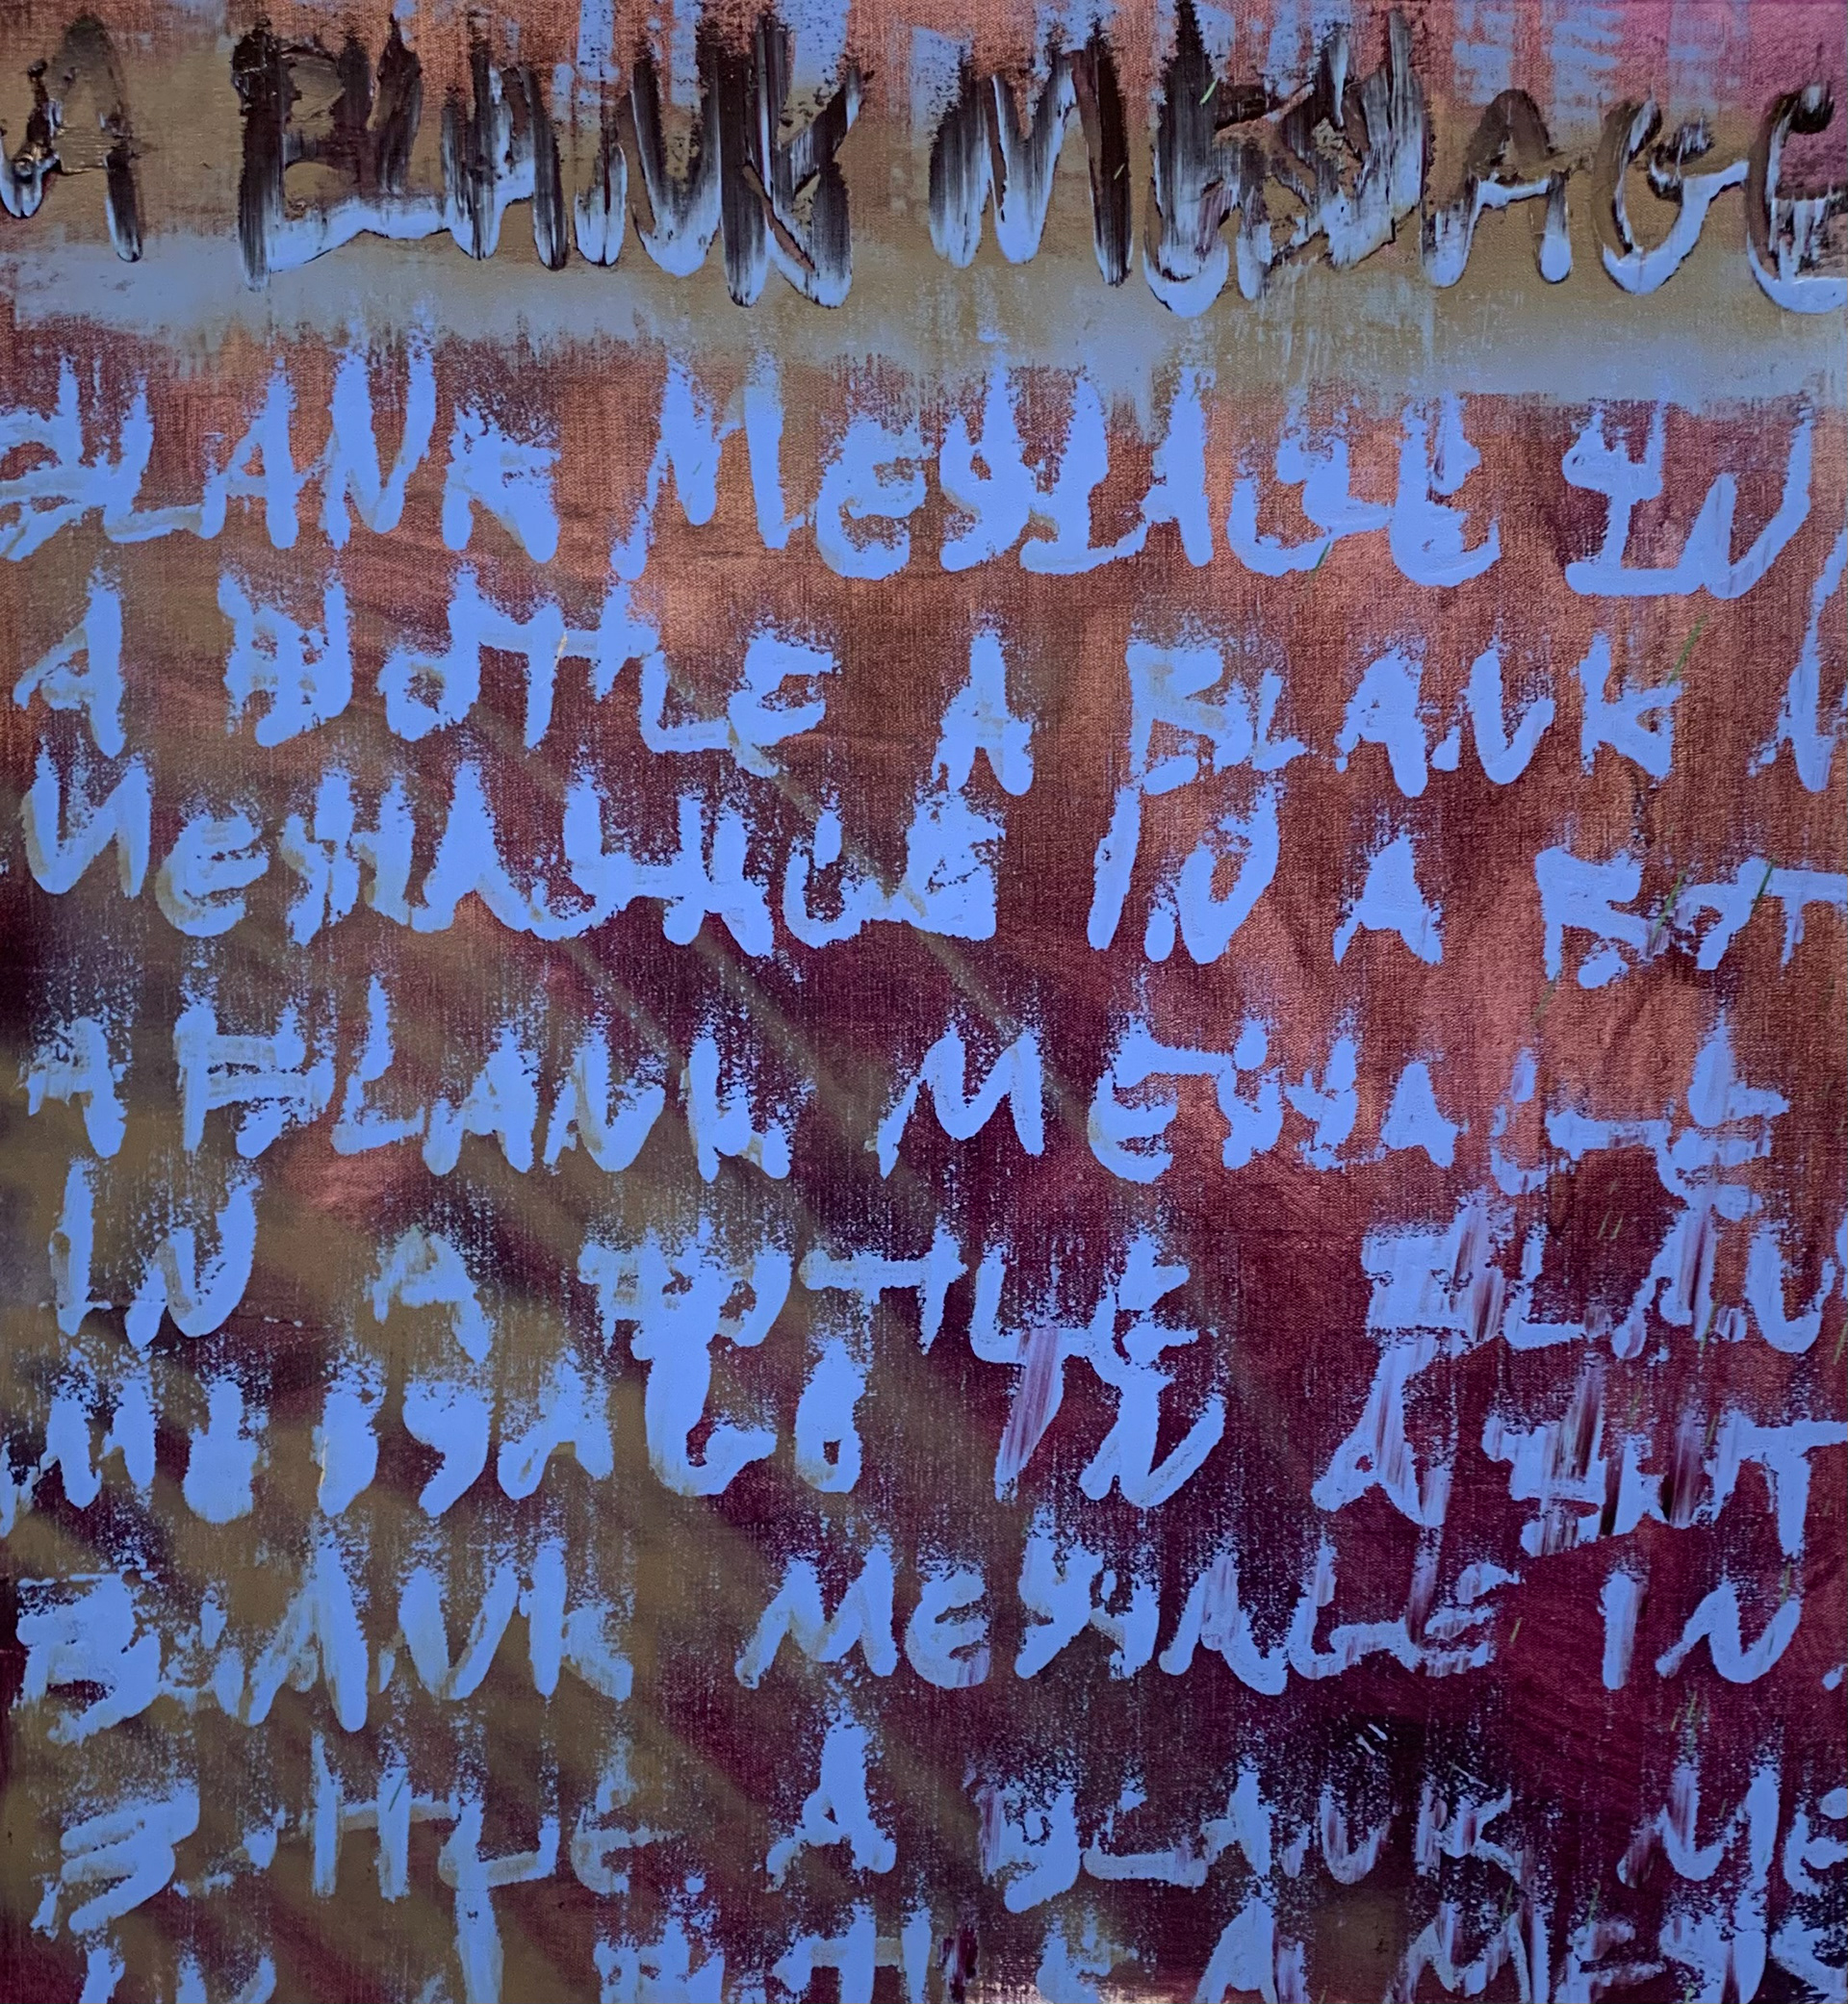 A BLANK MESSAGE
BLANK MESSAGE IN
A BOTTLE A BLANK
MESSAGE IN A BOT
A BLANK MESSAGE
IN A BOTTLE BLAN
IN A BOT
BLANK MESSAGE IN
BOTTLE A BLANK ME
IN A BOTTLE A MESS